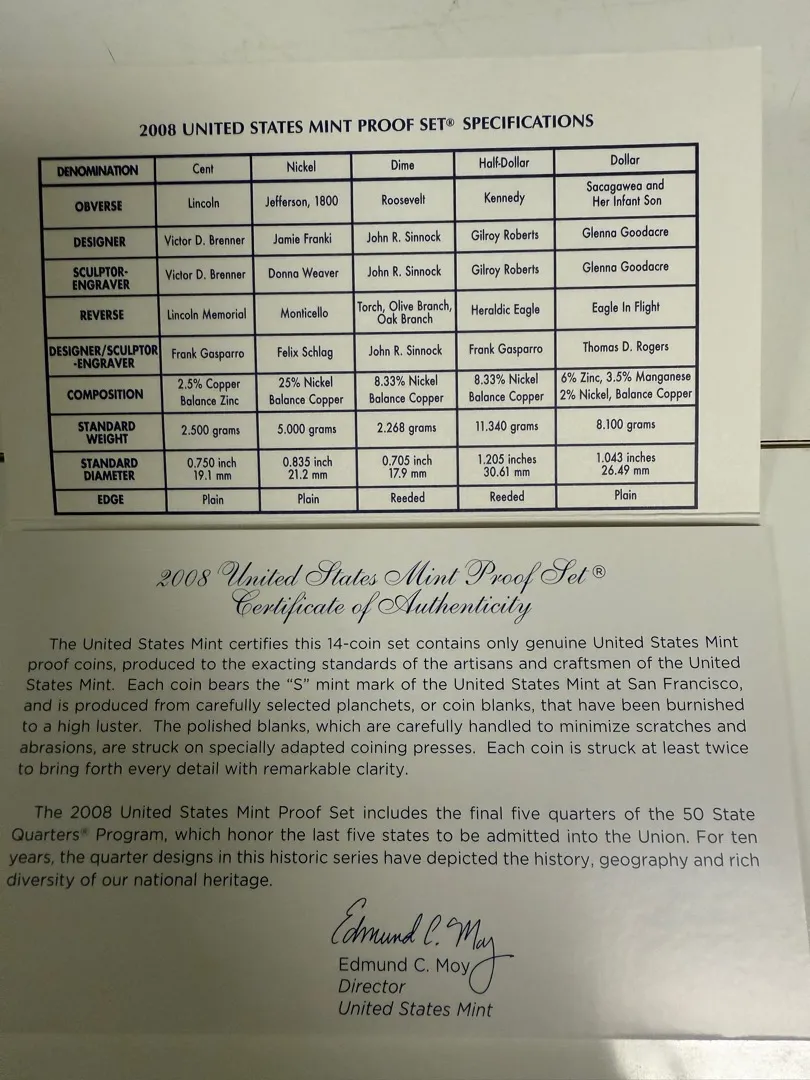 2008 UNITED STATES MINT PROOF SET® SPECIFICATIONS
DENOMINATION Cent Nickel Dime Half-Dollar Dollar
OBVERSE Lincoln Jefferson, 1800 Roosevelt Kennedy Sacagawea and
Her Infant Son
DESIGNER Victor D. Brenner Jamie Franki John R. Sinnock Gilroy Roberts Glenna Goodacre
SCULPTOR-
ENGRAVER Victor D. Brenner Donna Weaver John R. Sinnock Gilroy Roberts Glenna Goodacre
REVERSE Lincoln Memorial Monticello Torch, Olive Branch,
Oak Branch Heraldic Eagle Eagle In Flight
DESIGNER/SCULPTOR
-ENGRAVER Frank Gasparro Felix Schlag John R. Sinnock Frank Gasparro Thomas D. Rogers
COMPOSITION 2.5% Copper 25% Nickel 8.33% Nickel 8.33% Nickel 6% Zinc, 3.5% Manganese
Balance Zinc Balance Copper Balance Copper Balance Copper 2% Nickel, Balance Copper
STANDARD
WEIGHT 2.500 grams 5.000 grams 2.268 grams 11.340 grams 8.100 grams
STANDARD 0.750 inch 0.835 inch 0.705 inch 1.205 inches 1.043 inches
DIAMETER 19.1 mm 21.2 mm 17.9 mm 30.61 mm 26.49 mm
EDGE Plain Plain Reeded Reeded Plain
2008 United States Mint Proof Set®
Certificate of Authenticity
The United States Mint certifies this 14-coin set contains only genuine United States Mint
proof coins, produced to the exacting standards of the artisans and craftsmen of the United
States Mint. Each coin bears the “S” mint mark of the United States Mint at San Francisco,
and is produced from carefully selected planchets, or coin blanks, that have been burnished
to a high luster. The polished blanks, which are carefully handled to minimize scratches and
abrasions, are struck on specially adapted coining presses. Each coin is struck at least twice
to bring forth every detail with remarkable clarity.
The 2008 United States Mint Proof Set includes the final five quarters of the 50 State
Quarters® Program, which honor the last five states to be admitted into the Union. For ten
years, the quarter designs in this historic series have depicted the history, geography and rich
diversity of our national heritage.
Edmund C. Moy
Edmund C. Moy
Director
United States Mint